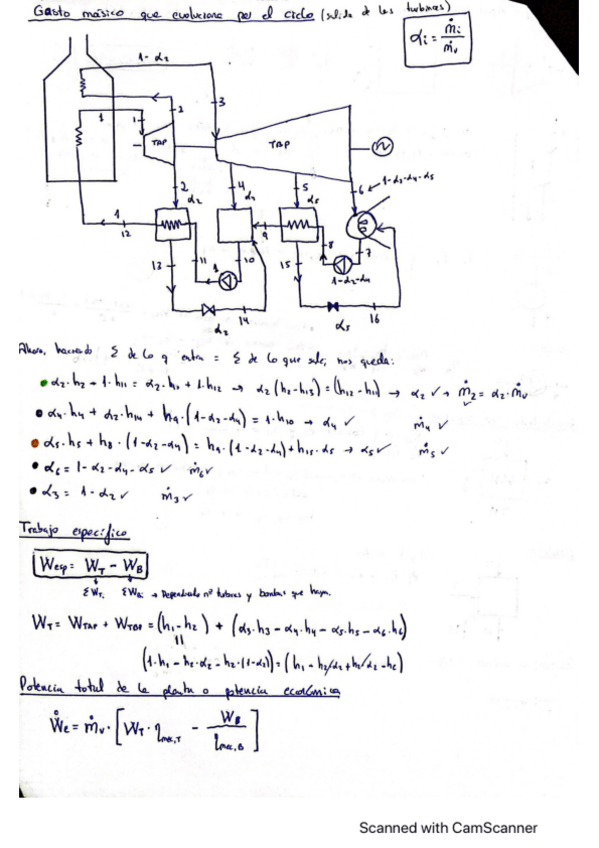 Gasto másico que evoluciona por el ciclo (salida de las turbinas)
αi = ṁi / ṁv
1-α2
1
1
2
3
TAP
TBP
2
α2
4
α4
5
α5
6
1-α2-α4-α5
1
12
11
10
9
8
7
1
1-α2-α4
13
15
14
16
α2
α5
Ahora, haciendo Σ de lo q entra = Σ de lo que sale, nos queda:
• α2·h2 + 1·h11 = α2·h13 + 1·h12 → α2(h2-h13) = (h12-h11) → α2 ✓ → ṁ2 = α2·ṁv
• α4·h4 + α2·h14 + h9·(1-α2-α4) = 1·h10 → α4 ✓ ṁ4 ✓
• α5·h5 + h8·(1-α2-α4) = h9·(1-α2-α4) + h15·α5 → α5 ✓ ṁ5 ✓
• α6 = 1-α2-α4-α5 ✓ ṁ6 ✓
• α3 = 1-α2 ✓ ṁ3 ✓
Trabajo específico
Wesp = WT - WB
ΣWTi ΣWBi → Dependiendo nº turbinas y bombas que haya.
WT = WTAP + WTBP = (h1-h2) + (α3·h3 - α4·h4 - α5·h5 - α6·h6)
(1·h1 - h2·α2 - h2·(1-α2)) = (h1 - h2α2 + h2α2 - h2)
Potencia total de la planta o potencia económica
Ẇe = ṁv·[WT·ηmec,T - WB / ηmec,B]
Scanned with CamScanner